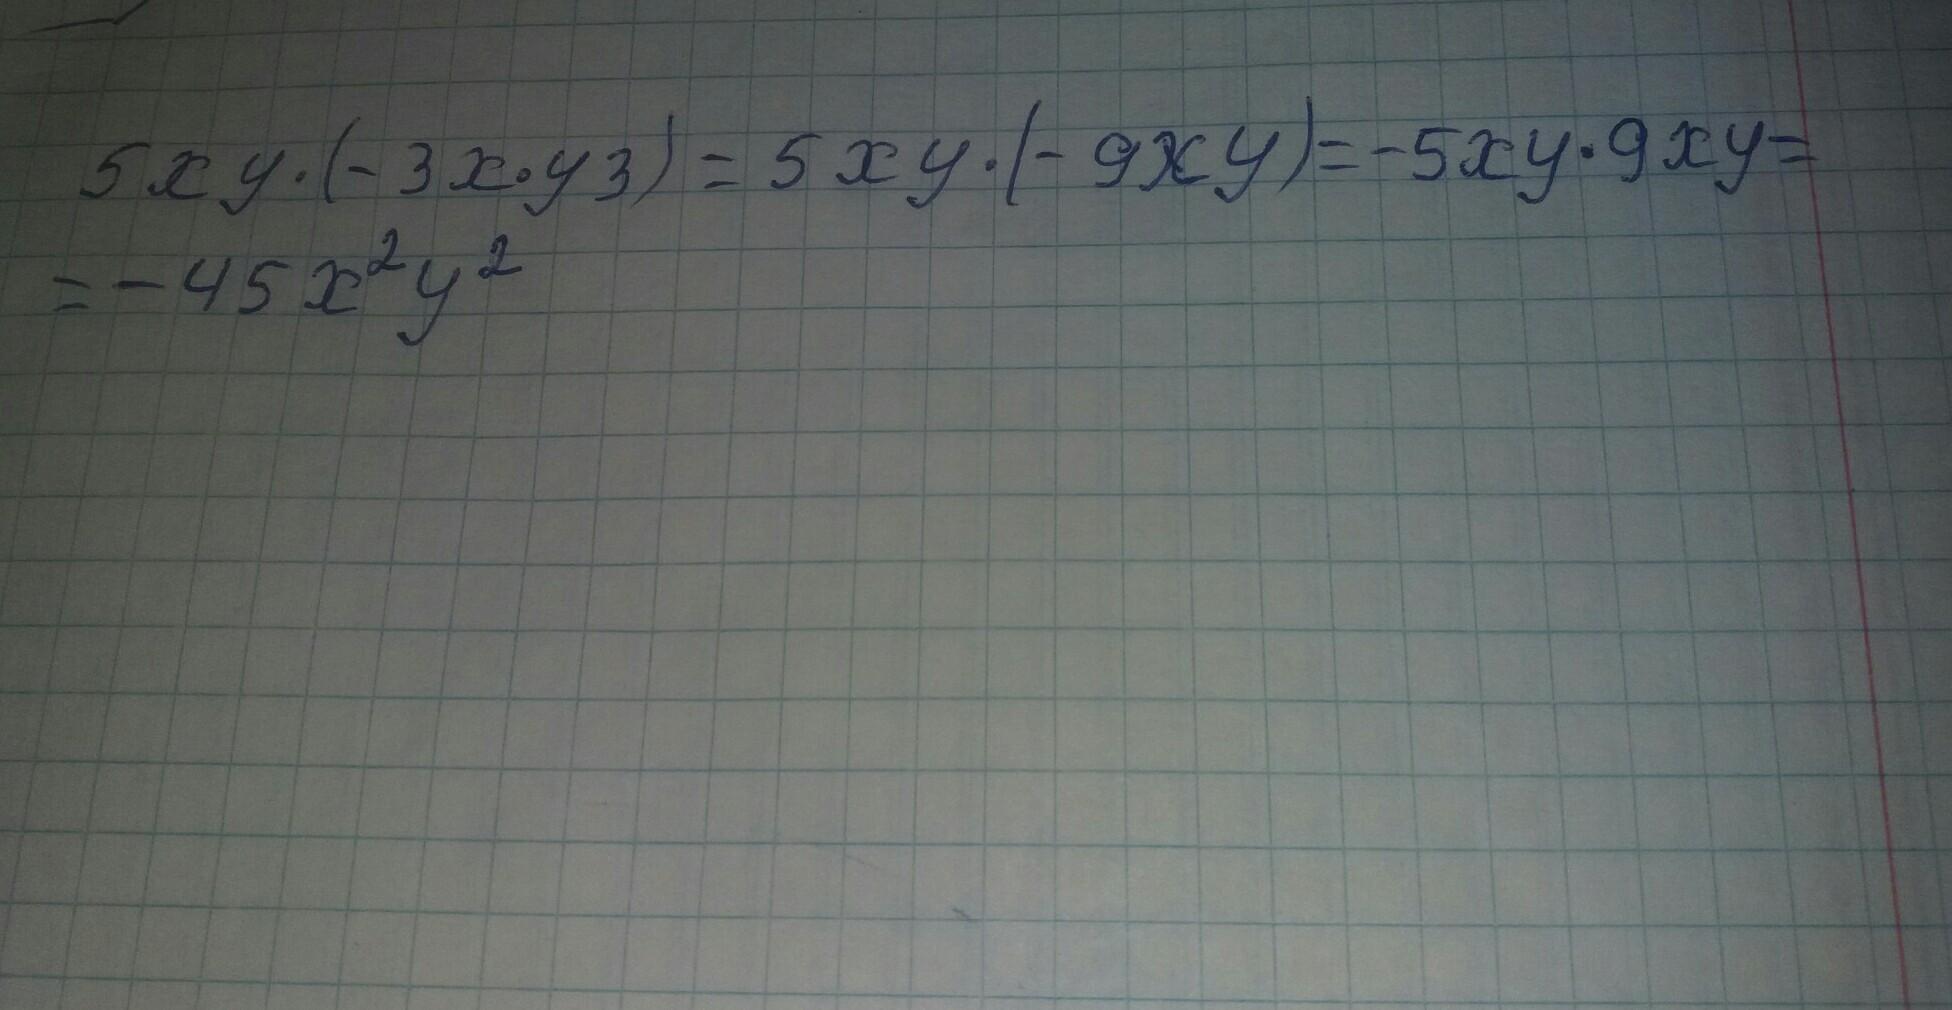 5xy·(-3x·y3)=5xy·(-9xy)=-5xy·9xy=
=-45x²y²